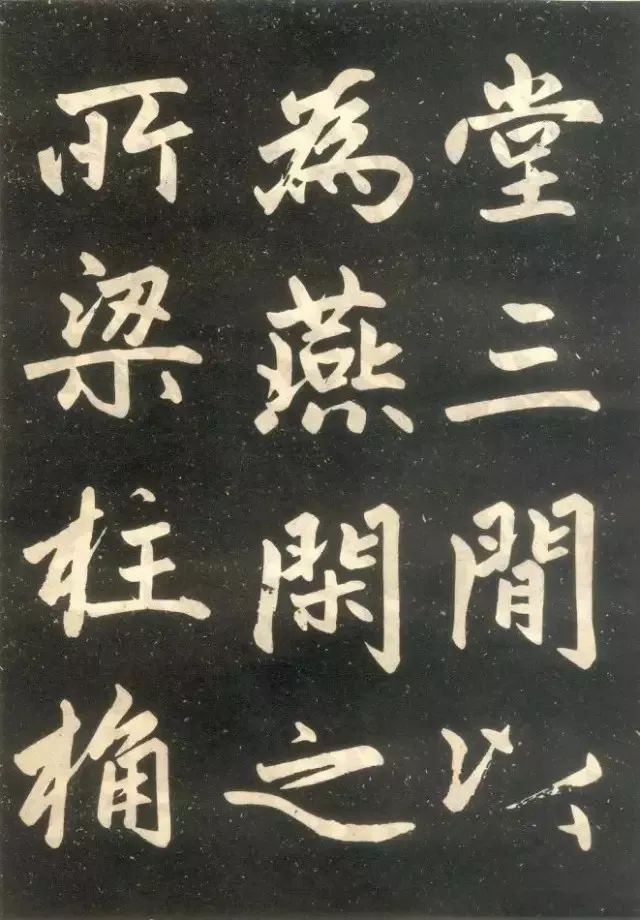 堂三閒以
為燕閑之
所梁柱桷